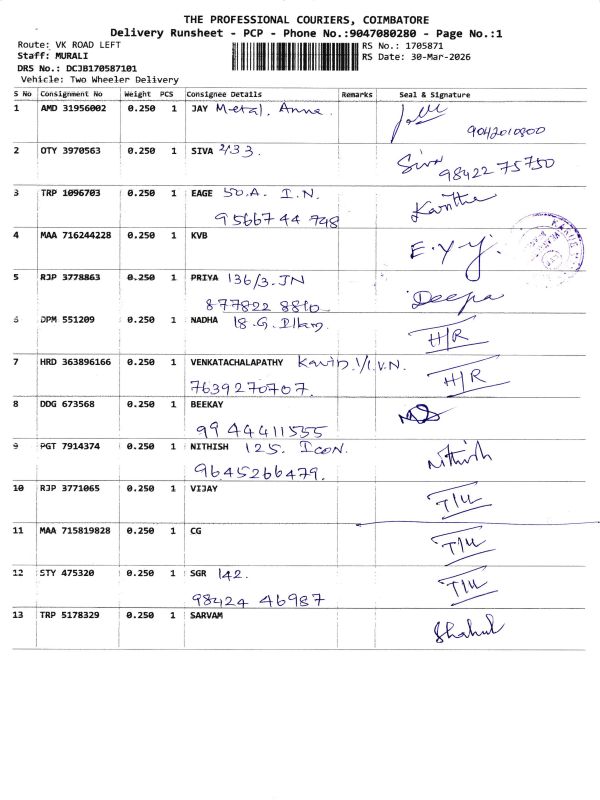 THE PROFESSIONAL COURIERS, COIMBATORE
Delivery Runsheet - PCP - Phone No.:9047080280 - Page No.:1
Route: VK ROAD LEFT RS No.: 1705871
Staff: MURALI RS Date: 30-Mar-2026
DRS No.: DCJB170587101
Vehicle: Two Wheeler Delivery
S No Consignment No Weight PCS Consignee Details Remarks Seal & Signature
1 AMD 31956002 0.250 1 JAY Metal. Anne.
9042010800
2 OTY 3970563 0.250 1 SIVA 2/33. Siva
98422 75750
3 TRP 1096703 0.250 1 EAGE 50.A. I.N. Kantha
95667 44 748
4 MAA 716244228 0.250 1 KVB E.Y.Y.
5 RJP 3778863 0.250 1 PRIYA 136/3.JN Deepa
877822 8810
6 DPM 551209 0.250 1 NADHA 18.G. H/R
7 HRD 363896166 0.250 1 VENKATACHALAPATHY 1/1.V.N. H/R
7639270707.
8 DDG 673568 0.250 1 BEEKAY
99 44411555
9 PGT 7914374 0.250 1 NITHISH 125. ICON. Nithish
9645266479.
10 RJP 3771065 0.250 1 VIJAY T/U
11 MAA 715819828 0.250 1 CG T/U
12 STY 475320 0.250 1 SGR 142. T/U
98424 46987
13 TRP 5178329 0.250 1 SARVAM Shahul